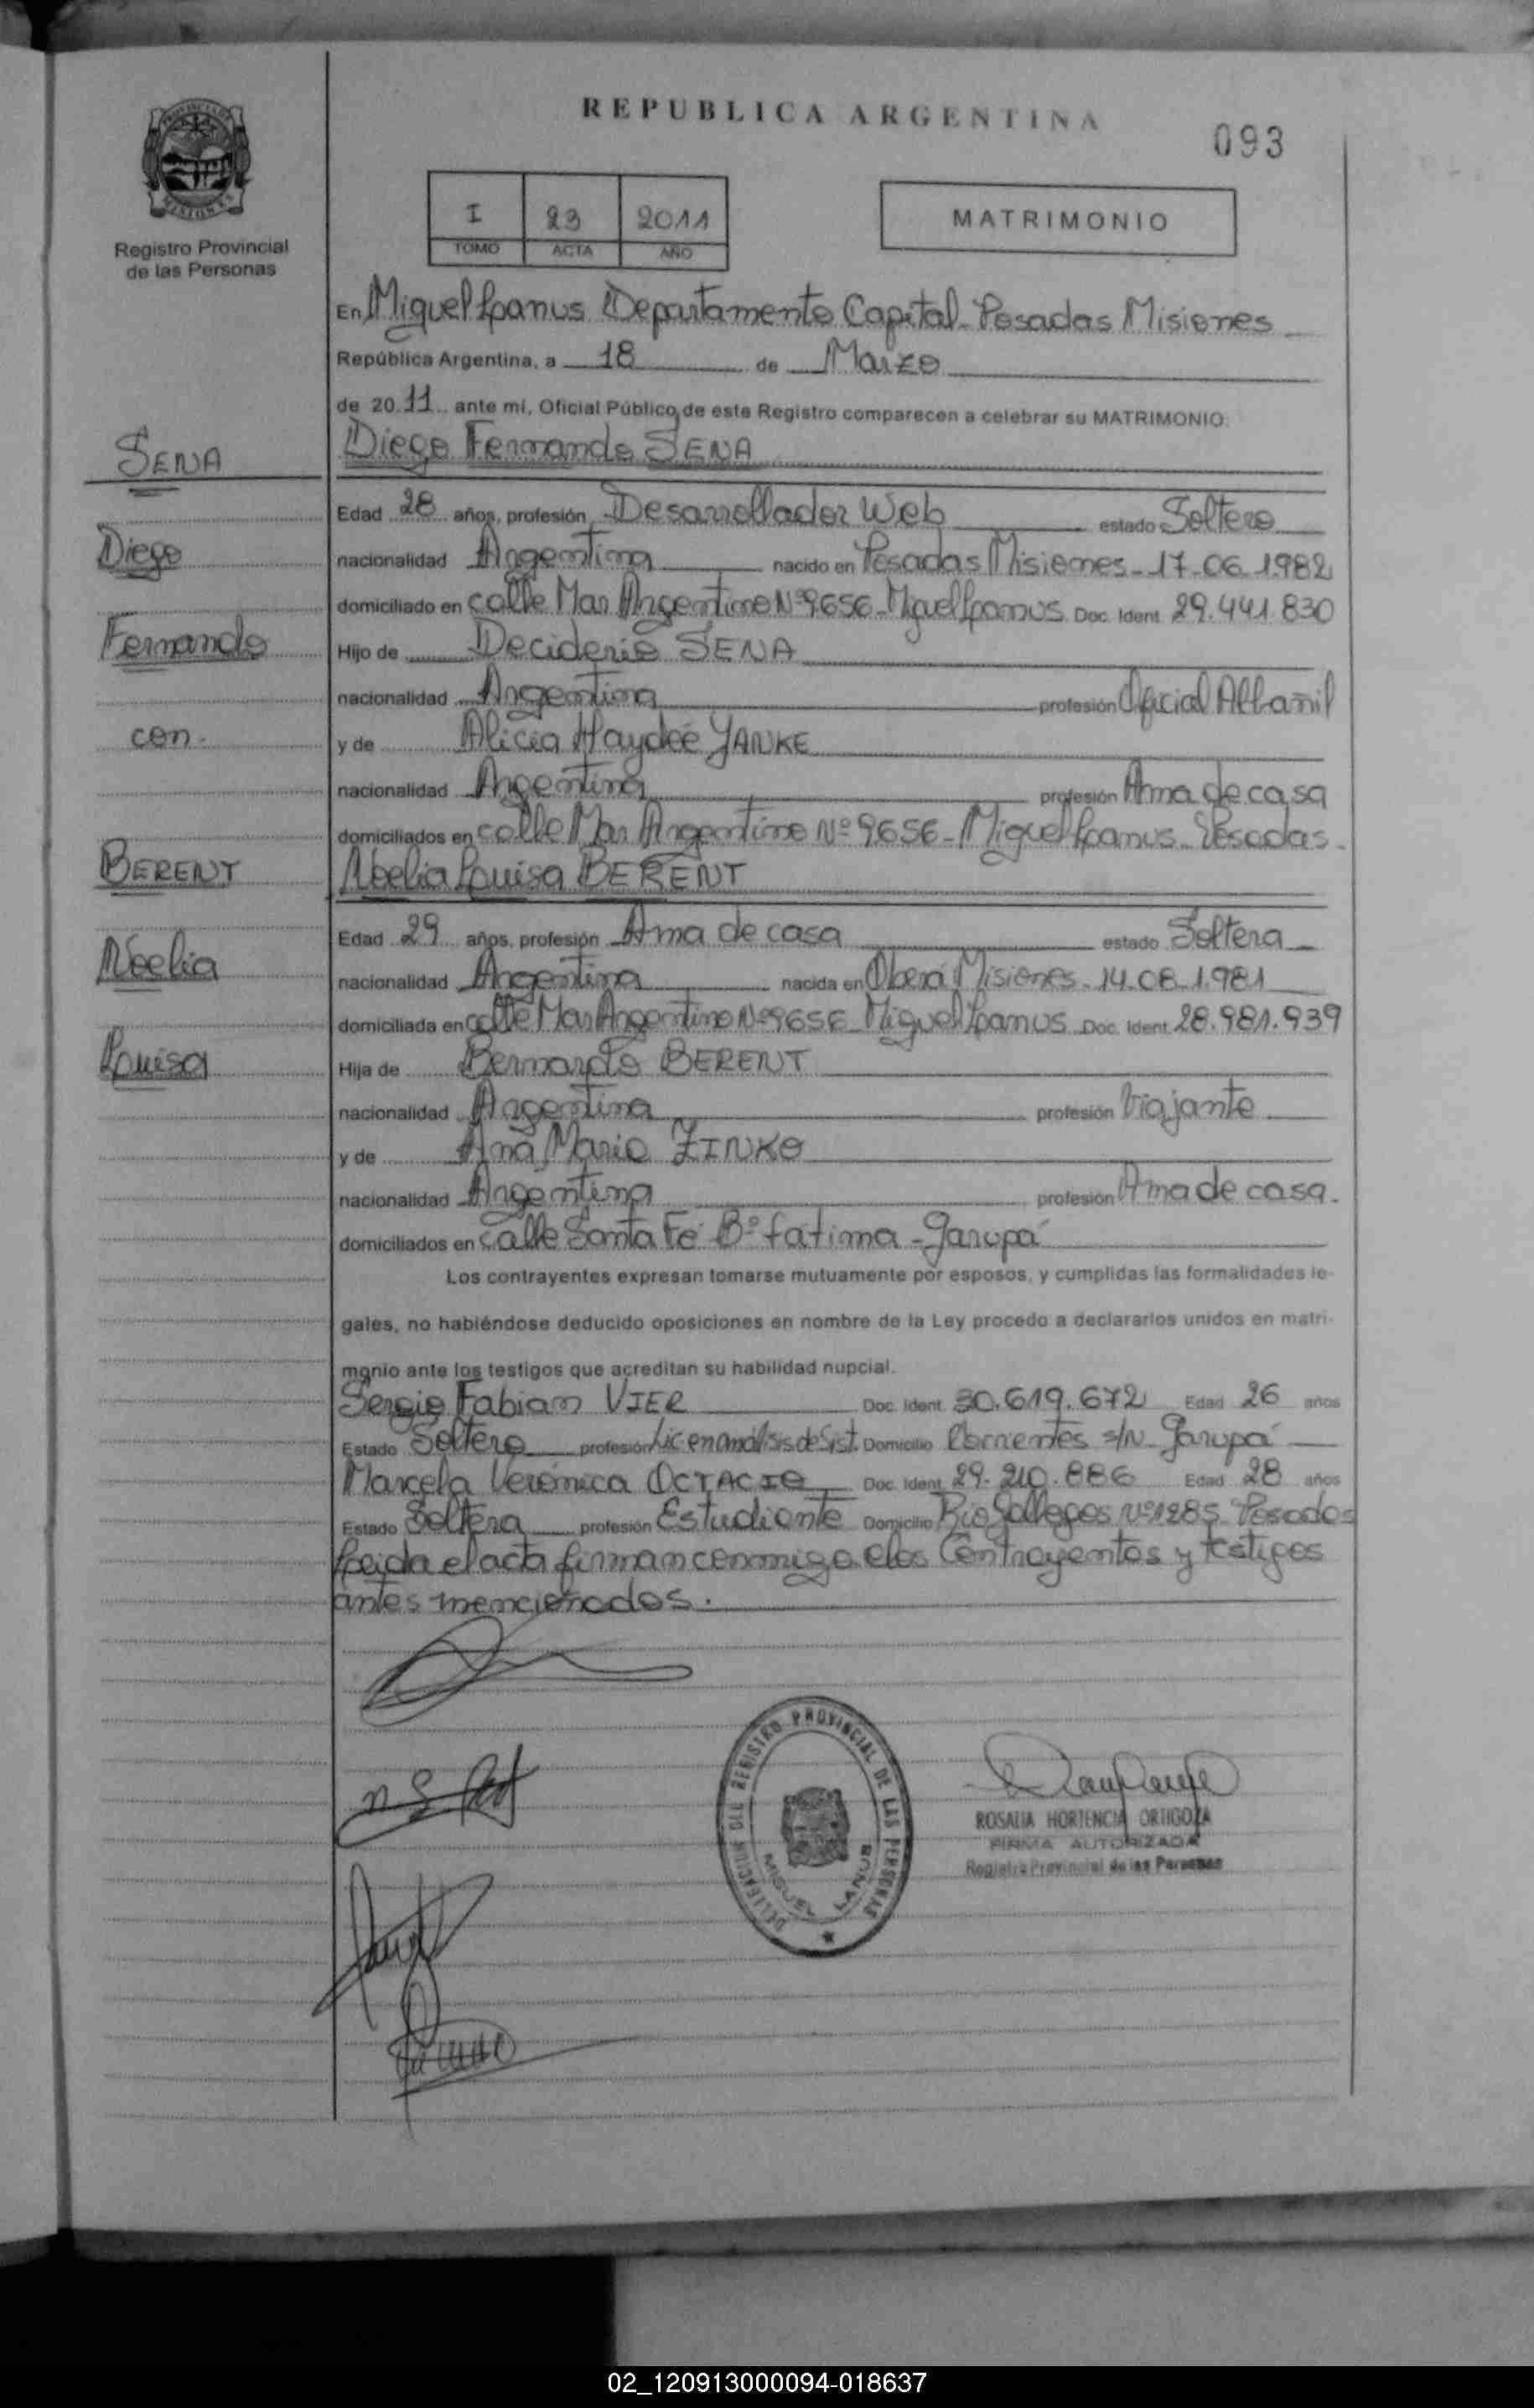 REPUBLICA ARGENTINA
093
PROVINCIA DE
MISIONES
Registro Provincial
de las Personas
I 23 2011
TOMO ACTA AÑO
MATRIMONIO
En Miguel Lanus Departamento Capital - Posadas Misiones
República Argentina, a 18 de Marzo
de 20 11 ante mí, Oficial Público, de este Registro comparecen a celebrar su MATRIMONIO:
SENA
Diego Fernando SENA
Edad 28 años, profesión Desarrollador Web estado Soltero
Diego
nacionalidad Argentina nacido en Posadas Misiones - 17-06-1982
domiciliado en calle Mar Argentino Nº 9656 - Miguel Lanus. Doc. Ident. 29.441.830
Fernando
Hijo de Deciderio SENA
nacionalidad Argentina profesión Oficial Albañil
con.
y de Alicia Haydée YANKE
nacionalidad Argentina profesión Ama de casa
domiciliados en calle Mar Argentino Nº 9656 - Miguel Lanus - Posadas.
BERENT
Noelia Louisa BERENT
Edad 29 años, profesión Ama de casa estado Soltera
Noelia
nacionalidad Argentina nacida en Oberá Misiones - 14-08-1.981
domiciliada en calle Mar Argentino Nº 9656 - Miguel Lanus Doc. Ident. 28.981.939
Louisa
Hija de Bernardo BERENT
nacionalidad Argentina profesión Viajante
y de Ana Maria ZINKO
nacionalidad Argentina profesión Ama de casa.
domiciliados en calle Santa Fé Bº fatima - Garupá
Los contrayentes expresan tomarse mutuamente por esposos, y cumplidas las formalidades le-
gales, no habiéndose deducido oposiciones en nombre de la Ley procedo a declararlos unidos en matri-
monio ante los testigos que acreditan su habilidad nupcial.
Sergio Fabian VIER Doc. Ident. 30.619.672 Edad 26 años
Estado Soltero profesión Lic en análisis de Sist. Domicilio Corrientes s/N - Garupá
Marcela Verónica OCTACIO Doc. Ident. 29.210.886 Edad 28 años
Estado Soltera profesión Estudiante Domicilio Rio Gallegos Nº 1285 Posadas
Leida el acta firman conmigo elos Contrayentes y testigos
antes mencionados.
DELEGACION DEL REGISTRO PROVINCIAL DE LAS PERSONAS
MIGUEL LANUS
ROSALIA HORTENCIA ORTIGOZA
FIRMA AUTORIZADA
Registro Provincial de las Personas
02_120913000094-018637